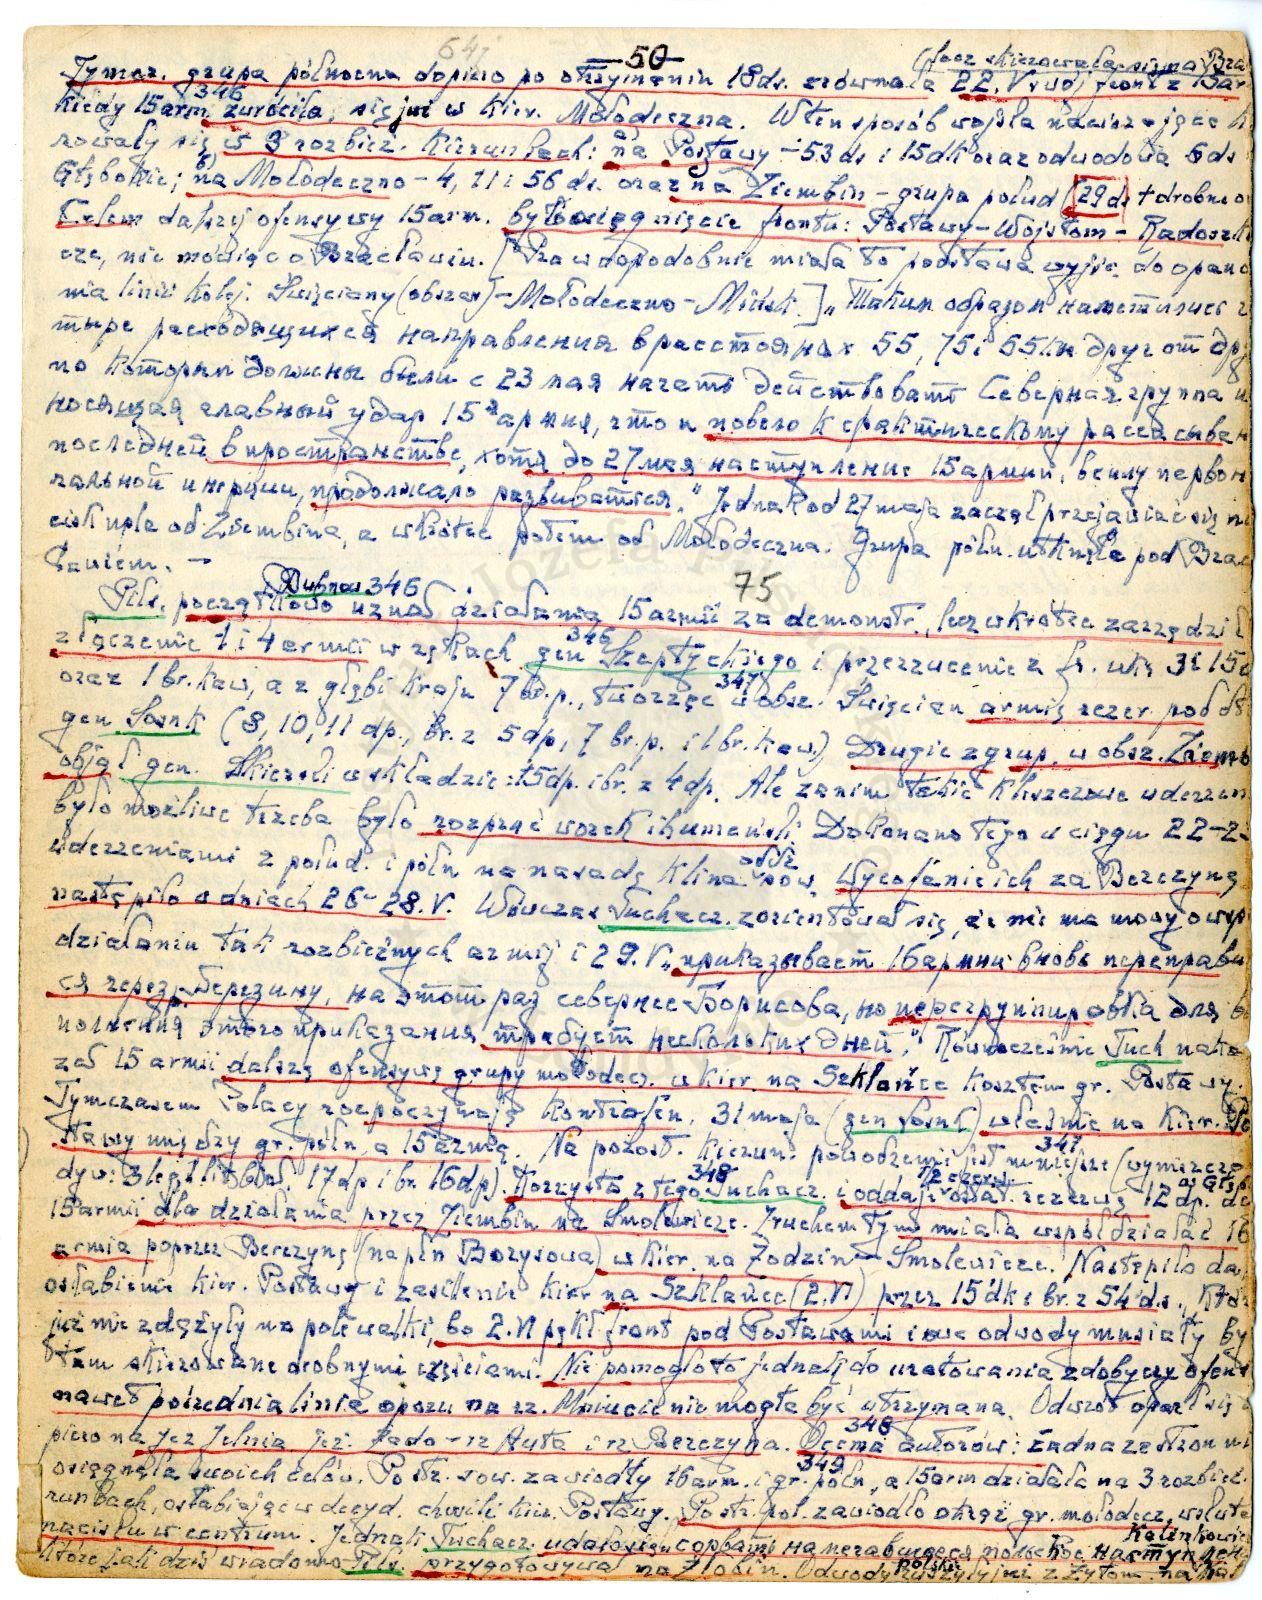 64j — 50 —
(lecz skierowała się na Bra
Tymcz. grupa północna dopiero po otrzymaniu 18 ds. zrównała 22.V swój front z 15 ar
346
kiedy 15 arm. zwróciła się już w kier. Mołodeczna. W ten sposób wojska nacierające
rowały się w 3 rozbież. kierunkach: a) na Postawy – 53 ds i 15 dk oraz odwodowa 6 ds
Głębokie; b) na Mołodeczno – 4, 11 i 56 ds. oraz na Ziembin – grupa połud (29 ds + drobne o
Celem dalszej ofensywy 15 arm. było osiągnięcie frontu: Postawy – Wojstom – Radoszk
cze, nie mówiąc o Bracławiu. [Prawdopodobnie miała to podstawa wyjśc. do opano
nia linii kolej. Święciany (obszar) – Mołodeczno – Mińsk.] „Таким образом наметились
тыре расходящихся направления в расстояниях 55, 75 i 55 км друг от др
по которым должны были с 23 мая начать действовать Северная группа и
носящая главный удар 15ая армия, что и повело к фактическому рассасыван
последней в пространстве, хотя до 27 мая наступление 15 армии, в силу первон
чальной инерции, продолжало развиваться." Jednak od 27 maja zaczął przejawiać się
od Ziembina, a wkrótce potem od Mołodeczna. Grupa półn. utknęła pod Brac
ławiem. —
(Dubno 346 75
Piłs. początkowo uznał działania 15 armii za demonstr., lecz wkrótce zarządził
złączenie 1 i 4 armii w rękach gen 346 Szeptyckiego i przerzucenie z fr. ukr 3 i 15
oraz 1 br. kaw, a z głębi kraju 7 br. p., tworząc 347 w obsz. Święcian armię rezer. pod d
gen Sosnk (8, 10, 11 dp., br. z 5 dp, 7 br. p. i 1 br. kaw.) Drugie zgrup. w obsz. Ziemb
objął gen. Skierski w składzie: 15 dp. i br. z 4 dp. Ale zanim takie kleszczowe uderzen
było możliwe trzeba było rozpruć worek ihumeński. Dokonano tego w ciągu 22–2
uderzeniami z połud. i półn na nasadę klina Wycofanie ich za Berezynę
nastąpiło w dniach 26–28.V. Wówczas Tuchacz. zorientował się, że nie ma mowy o wsp
działaniu tak rozbieżnych armij i 29.V. „приказывает 16 армии вновь переправи
ся через р. Березину, на этот раз севернее Борисова, но перегруппировка для в
полнения этого приказания требует нескольких дней." Równocześnie Tuch naka
zał 15 armii dalszą ofensywę grupy mołodecz. w kier. na Szklańce kosztem gr. Postawy.
Tymczasem Polacy rozpoczynają kontrofen. 31 maja (gen Sosnk) właśnie na kier. Po
stawy między gr. półn. a 15 armią. Na pozost. kierun. powodzenie jest mniejsze (wymarsze
347
dyw: 3 leg, 17 dp i br. 16 dp). Korzysta z tego 348 Tuchacz. i oddaje ostat. rezerwę 12 dp. do
15 armii dla działania przez Ziembin na Smolewicze. Z ruchem tym miała współdziałać 16
armia poprzez Berezynę (na płn Borysowa) w kier. na Żodzin – Smolewicze. Nastąpiło da
osłabienie kier. Postawy i zasilenie kier na Szklańce (2.VI) przez 15 dk i br. z 54 ds., któ
już nie zdążyły na pole walki, bo 2.VI pękł front pod Postawami i owe odwody musiały by
tam skierowane drobnymi częściami. Nie pomogło to jednak do uratowania zdobyczy ofen
nawet pośrednia linia oporu na rz. Mniucie nie mogła być utrzymana. Odwrót oparł się
piero na jez Jelnia, jez. Żado – rz Auta i rz Berezyna. 348 Ocena autorów: żadna ze stron ni
osiągnęła swoich celów. Po str. sow. zawiodły 349 16 arm. i gr. półn, a 15 arm działała na 3 rozbież.
runkach, osłabiając w decyd. chwili kier. Postawy. Po str. pol. zawiodło okrąż gr. mołodecz. wskute
nacisku w centrum. Jednak Tuchacz.
Kalinkowic
które jak dziś wiadomo Piłs. przygotowywał na Żłobin. Odwody polskie z Żytom. na Kal